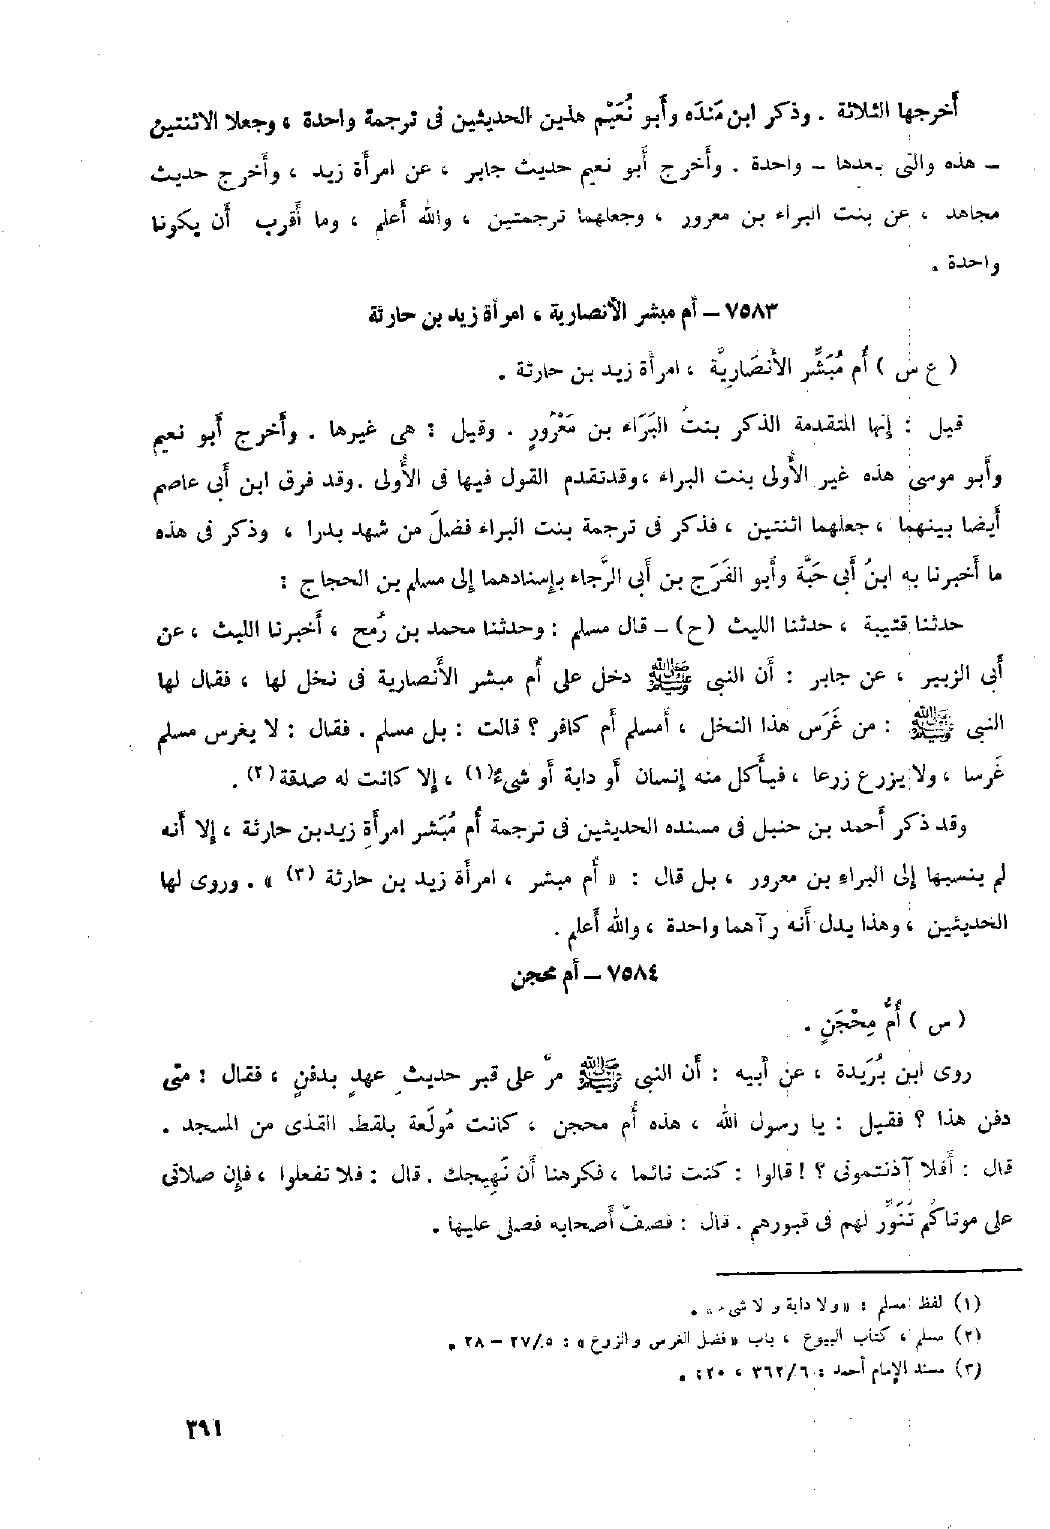 أخرجها الثلاثة . وذكر ابن مَنْدَه وأبو نُعَيْم هذين الحديثين فى ترجمة واحدة ، وجعلا الاثنتين
– هذه والتى بعدها – واحدة . وأخرج أبو نعيم حديث جابر ، عن امرأة زيد ، وأخرج حديث
مجاهد ، عن بنت البراء بن معرور ، وجعلهما ترجمتين ، والله أعلم ، وما أقرب أن يكونا
واحدة .
٧٥٨٣ – أم مبشر الأنصارية ، امرأة زيد بن حارثة
( ع س ) أُم مُبَشِّر الأَنْصَارِيَّة ، امرأة زيد بن حارثة .
قيل : إنها المتقدمة الذكر بنتُ البَرَاء بن مَعْرُورٍ . وقيل : هى غيرها . وأخرج أبو نعيم
وأبو موسى هذه غير الأُولى بنت البراء ، وقد تقدم القول فيها فى الأُولى . وقد فرق ابن أبى عاصم
أيضا بينهما ، جعلهما اثنتين ، فذكر فى ترجمة بنت البراء فضلَ من شهد بدرا ، وذكر فى هذه
ما أخبرنا به ابنُ أبى حَبَّة وأبو الفَرَج بن أبى الرَّجاء بإسنادهما إلى مسلم بن الحجاج :
حدثنا قتيبة ، حدثنا الليث (ح) – قال مسلم : وحدثنا محمد بن رُمح ، أخبرنا الليث ، عن
أبى الزبير ، عن جابر : أن النبى ﷺ دخل على أُم مبشر الأنصارية فى نخل لها ، فقال لها
النبى ﷺ : من غَرَس هذا النخل ، أمسلم أم كافر ؟ قالت : بل مسلم . فقال : لا يغرس مسلم
غَرسا ، ولا يزرع زرعا ، فيأكل منه إنسان أو دابة أو شىءٌ(١) ، إلا كانت له صدقة (٢) .
وقد ذكر أحمد بن حنبل فى مسنده الحديثين فى ترجمة أُم مُبَشر امرأةِ زيد بن حارثة ، إلا أنه
لم ينسبها إلى البراء بن معرور ، بل قال : « أُم مبشر ، امرأة زيد بن حارثة (٣) » . وروى لها
الحديثين ، وهذا يدل أنه رآهما واحدة ، والله أعلم .
٧٥٨٤ – أم محجن
( س ) أُمُّ مِحْجَنٍ .
روى ابن بُرَيدة ، عن أبيه : أن النبى ﷺ مرّ على قبر حديثِ عهدٍ بدفنٍ ، فقال : متى
دفن هذا ؟ فقيل : يا رسول الله ، هذه أُم محجن ، كانت مُولَعة بلقط القذى من المسجد .
قال : أفلا آذنتمونى ؟ ! قالوا : كنت نائما ، فكرهنا أن نَهِيجك . قال : فلا تفعلوا ، فإن صلاتى
على موتاكم تُنَوِّر لهم فى قبورهم . قال : فصفّ أصحابه فصلى عليها .
(١) لفظ مسلم : « ولا دابة ولا شىء » .
(٢) مسلم ، كتاب البيوع ، باب « فضل الغرس والزرع » : ٥/٢٧ – ٢٨ .
(٣) مسند الإمام أحمد : ٦/٣٦٢ ،
٣٩١